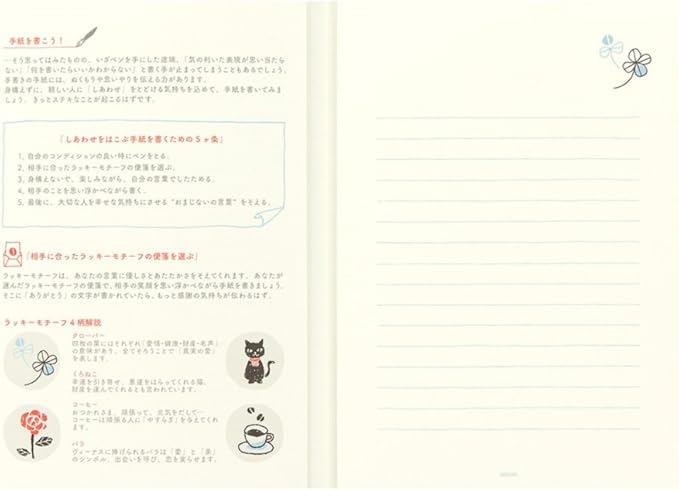 手紙を書こう！
…そう思ってはみたものの、いざペンを手にした途端、「気の利いた表現が思い当たら
ない」「何を書いたらいいかわからない」と書く手が止まってしまうこともあるでしょう。
手書きの手紙には、ぬくもりや思いやりを伝える力があります。
身構えずに、親しい人に「しあわせ」をとどける気持ちを込めて、手紙を書いてみま
しょう。きっとステキなことが起こるはずです。
「しあわせをはこぶ手紙を書くための5ヶ条」
1. 自分のコンディションの良い時にペンをとる。
2. 相手に合ったラッキーモチーフの便箋を選ぶ。
3. 身構えないで、楽しみながら、自分の言葉でしたためる。
4. 相手のことを思い浮かべながら書く。
5. 最後に、大切な人を幸せな気持ちにさせる“おまじないの言葉”をそえる。
「相手に合ったラッキーモチーフの便箋を選ぶ」
ラッキーモチーフは、あなたの言葉に優しさとあたたかさをそえてくれます。あなたが
選んだラッキーモチーフの便箋で、相手の笑顔を思い浮かべながら手紙を書きましょう。
そこに「ありがとう」の文字が書かれていたら、もっと感謝の気持ちが伝わるはず。
ラッキーモチーフ4柄解説
クローバー
四枚の葉にはそれぞれ「愛情・健康・財産・名声」
の意味があり、全てそろうことで「真実の愛」
を表します。
くろねこ
幸運を引き寄せ、悪運をはらってくれる猫。
財産を運んでくれるとも言われています。
コーヒー
おつかれさま、頑張って、元気をだして…
コーヒーは頑張る人に「やすらぎ」を与えてくれ
ます。
バラ
ヴィーナスに捧げられるバラは「愛」と「美」
のシンボル。出会いを呼び、恋を実らせます。